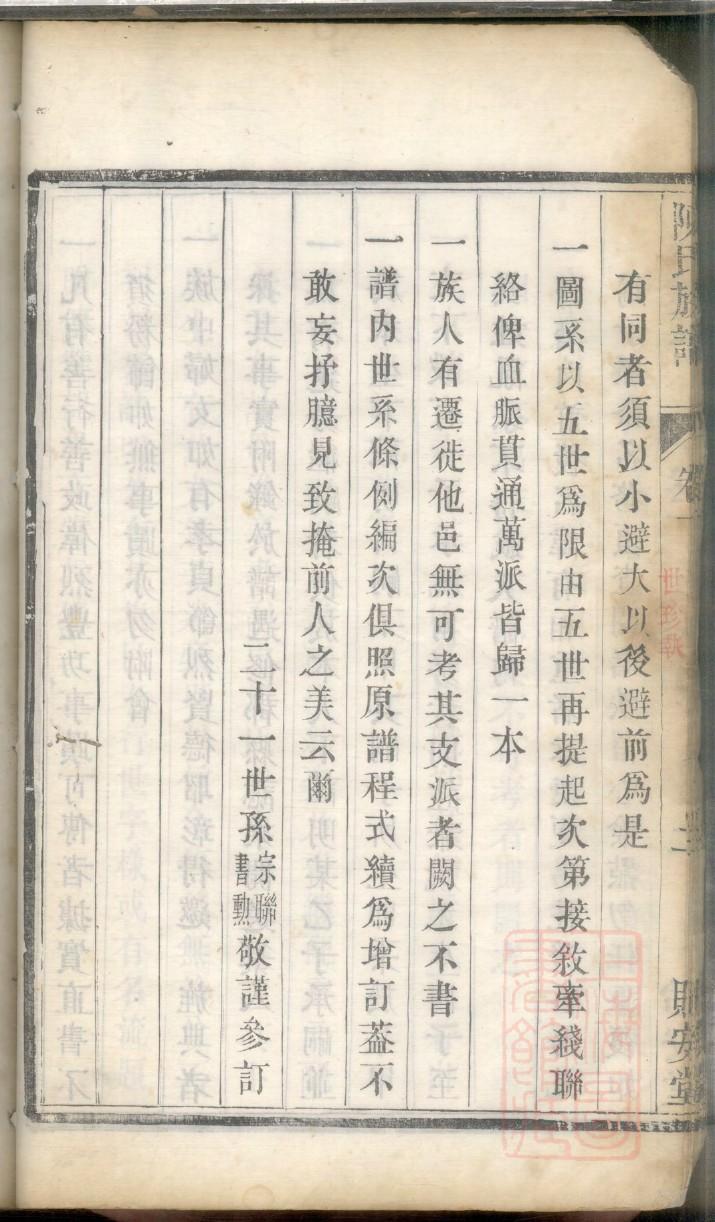 有同者須以小避大以後避前為是
一圖系以五世為限由五世再提起次第接敘牽綫聯
絡俾血脈貫通萬派皆歸一本
一族人有遷徙他邑無可考其支派者闕之不書
一譜內世系條例編次俱照原譜程式續為增訂葢不
敢妄抒臆見致掩前人之美云爾
二十一世孫宗聯書勲敬謹參訂
氏族譜
卷一
安堂
世珍執